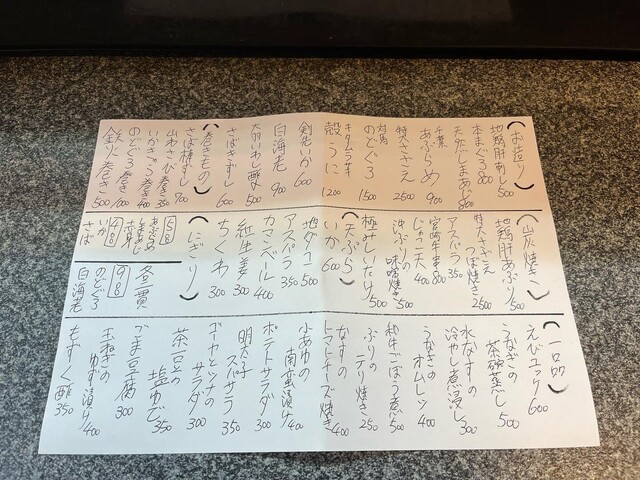 (お造り)
地鶏肝刺し 500
本まぐろ 800
天然しまあじ 800
千葉 あぶらめ 900
特大さざえ 2500
対馬 のどぐろ 1500
キタムラサキ
殻うに 1200
剣先いか 600
白海老 900
大羽いわし酢 500
さばきずし 600
(巻きもの)
さば棒すし 900
山わさび巻き 350
のどぐろ巻き
鉄火巻き 500
(山炭焼き)
地鶏肝あぶり 500
特大さざえ
つぼ焼き 2500
アスパラ 350
宮崎牛串 800
じゃこ天 400
沖ぶりの
味噌焼き 500
極みしいたけ 500
(天ぷら)
いか 600
地ダコ 500
アスパラ 350
カマンベール 400
紅生姜 300
ちくわ 300
(にぎり)
各一貫
いか
さば
のどぐろ
白海老
(一品)
えびエッグ 600
うなぎの
茶碗蒸し 500
水なすの
冷やし煮浸し 300
うなぎの
オムレツ 400
和牛ごぼう煮 500
ぶりの
テリ焼き 250
なすの
トマトチーズ焼き 400
小あゆの
南蛮漬け 400
ポテトサラダ 300
明太子
スパサラ 350
ゴーヤとツナの
サラダ 300
茶豆の
塩ゆで 350
ごま豆腐 300
玉ねぎの
ゆず漬け 400
もずく酢 350